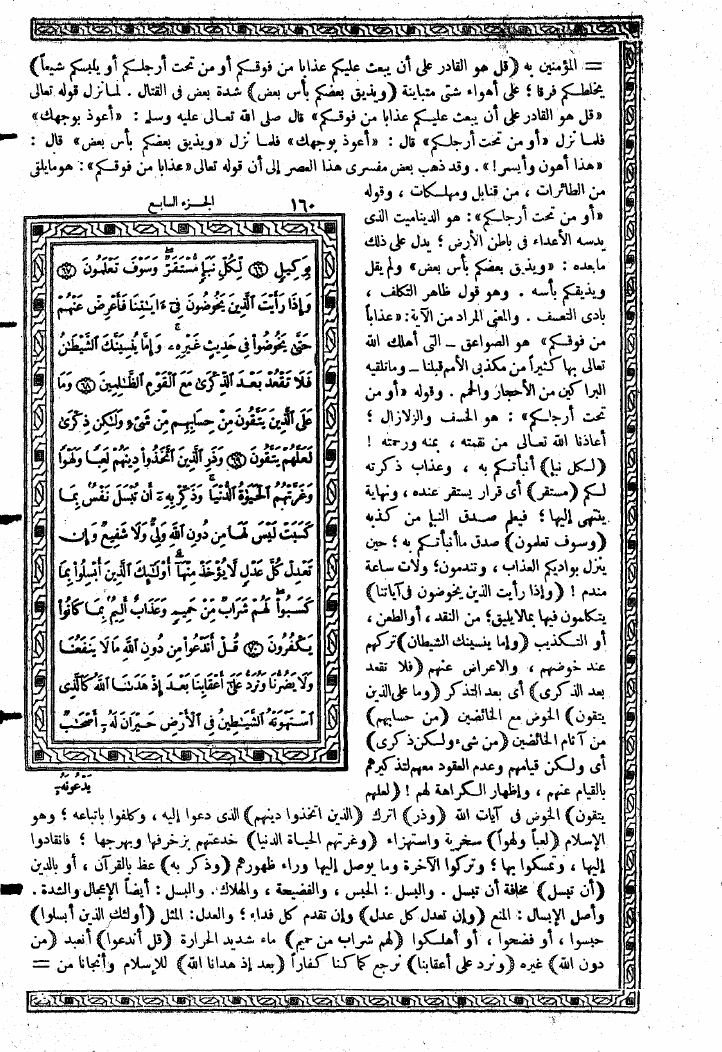 = المؤمنين به (قل هو القادر على أن يبعث عليكم عذابا من فوقكم أو من تحت أرجلكم أو يلبسكم شيعاً)
يخلطكم فرقا؛ على أهواء شتى متباينة (ويذيق بعضكم بأس بعض) شدة بعض فى القتال. لما نزل قوله تعالى
«قل هو القادر على أن يبعث عليكم عذابا من فوقكم» قال صلى الله تعالى عليه وسلم: «أعوذ بوجهك»
فلما نزل «أو من تحت أرجلكم» قال: «أعوذ بوجهك» فلما نزل «ويذيق بعضكم بأس بعض» قال:
«هذا أهون وأيسر!». وقد ذهب بعض مفسرى هذا العصر إلى أن قوله تعالى «عذابا من فوقكم»: هو مايلقى
من الطائرات، من قنابل ومهلكات، وقوله
«أو من تحت أرجلكم»: هو الديناميت الذى
يدسه الأعداء فى باطن الأرض؛ يدل على ذلك
مابعده: «ويذيق بعضكم بأس بعض» ولم يقل
ويذيقكم بأسه. وهو قول ظاهر التكلف،
بادى التعسف. والمعنى المراد من الآية: «عذاباً
من فوقكم» هو الصواعق ــ التى أهلك الله
تعالى بها كثيراً من مكذبى الأمم قبلنا ــ وماتلقيه
البراكين من الأحجار والحمم. وقوله «أو من
تحت أرجلكم»: هو الخسف والزلازل؛
أعاذنا الله تعالى من نقمته، بمنه ورحمته!
(لكل نبإ) أنبأتكم به، وعذاب ذكرته
لكم (مستقر) أى قرار يستقر عنده، ونهاية
ينتهى إليها؛ فيعلم صدق النبإ من كذبه
(وسوف تعلمون) صدق ماأنبأتكم به؛ حين
ينزل بواديكم العذاب، وتندمون؛ ولات ساعة
مندم! (وإذا رأيت الذين يخوضون فى آياتنا)
يتكلمون فيها بمالايليق؛ من النقد، أوالطعن،
أو التكذيب (وإما ينسينك الشيطان) تركهم
عند خوضهم، والاعراض عنهم (فلا تقعد
بعد الذكرى) أى بعد التذكر (وما على الذين
يتقون) الخوض مع الخائضين (من حسابهم)
من آثام الخائضين (من شىء ولكن ذكرى)
أى ولكن قيامهم وعدم القعود معهم لتذكيرهم
بالقيام عنهم، وإظهار الكراهة لهم! (لعلهم
يتقون) الخوض فى آيات الله (وذر) اترك (الذين اتخذوا دينهم) الذى دعوا إليه، وكلفوا باتباعه؛ وهو
الإسلام (لعباً ولهواً) سخرية واستهزاء (وغرتهم الحياة الدنيا) خدعتهم بزخرفها وبهرجها؛ فانقادوا
إليها، وتمسكوا بها؛ وتركوا الآخرة وما يوصل إليها وراء ظهورهم (وذكر به) عظ بالقرآن، أو بالدين
(أن تبسل) مخافة أن تبسل. والبسل: الحبس، والفضيحة، والهلاك. والبسل: أيضاً الإعجال والشدة.
وأصل الإبسال: المنع (وإن تعدل كل عدل) وإن تقدم كل فداء؛ والعدل: المثل (أولئك الذين أبسلوا)
حبسوا، أو فضحوا، أو أهلكوا (لهم شراب من حميم) ماء شديد الحرارة (قل أندعوا) أنعبد (من
دون الله) غيره (ونرد على أعقابنا) نرجع كما كنا كفاراً (بعد إذ هدانا الله) للإسلام وأنجانا من =
١٦٠ الجزء السابع
بِوَكِيلٍ ٦٦ لِكُلِّ نَبَإٍ مُّسْتَقَرٌّ وَسَوْفَ تَعْلَمُونَ ٦٧
وَإِذَا رَأَيْتَ الَّذِينَ يَخُوضُونَ فِى ءَايَـٰتِنَا فَأَعْرِضْ عَنْهُمْ
حَتَّىٰ يَخُوضُوا فِى حَدِيثٍ غَيْرِهِۦ وَإِمَّا يُنسِيَنَّكَ الشَّيْطَـٰنُ
فَلَا تَقْعُدْ بَعْدَ الذِّكْرَىٰ مَعَ الْقَوْمِ الظَّـٰلِمِينَ ٦٨ وَمَا
عَلَى الَّذِينَ يَتَّقُونَ مِنْ حِسَابِهِم مِّن شَىْءٍ وَلَـٰكِن ذِكْرَىٰ
لَعَلَّهُمْ يَتَّقُونَ ٦٩ وَذَرِ الَّذِينَ اتَّخَذُوا دِينَهُمْ لَعِبًا وَلَهْوًا
وَغَرَّتْهُمُ الْحَيَوٰةُ الدُّنْيَا وَذَكِّرْ بِهِۦٓ أَن تُبْسَلَ نَفْسٌ بِمَا
كَسَبَتْ لَيْسَ لَهَا مِن دُونِ اللَّهِ وَلِىٌّ وَلَا شَفِيعٌ وَإِن
تَعْدِلْ كُلَّ عَدْلٍ لَّا يُؤْخَذْ مِنْهَا أُولَـٰٓئِكَ الَّذِينَ أُبْسِلُوا بِمَا
كَسَبُوا لَهُمْ شَرَابٌ مِّنْ حَمِيمٍ وَعَذَابٌ أَلِيمٌ بِمَا كَانُوا
يَكْفُرُونَ ٧٠ قُلْ أَنَدْعُوا مِن دُونِ اللَّهِ مَا لَا يَنفَعُنَا
وَلَا يَضُرُّنَا وَنُرَدُّ عَلَىٰٓ أَعْقَابِنَا بَعْدَ إِذْ هَدَىٰنَا اللَّهُ كَالَّذِى
اسْتَهْوَتْهُ الشَّيَـٰطِينُ فِى الْأَرْضِ حَيْرَانَ لَهُۥٓ أَصْحَـٰبٌ
يَدْعُونَهُۥٓ